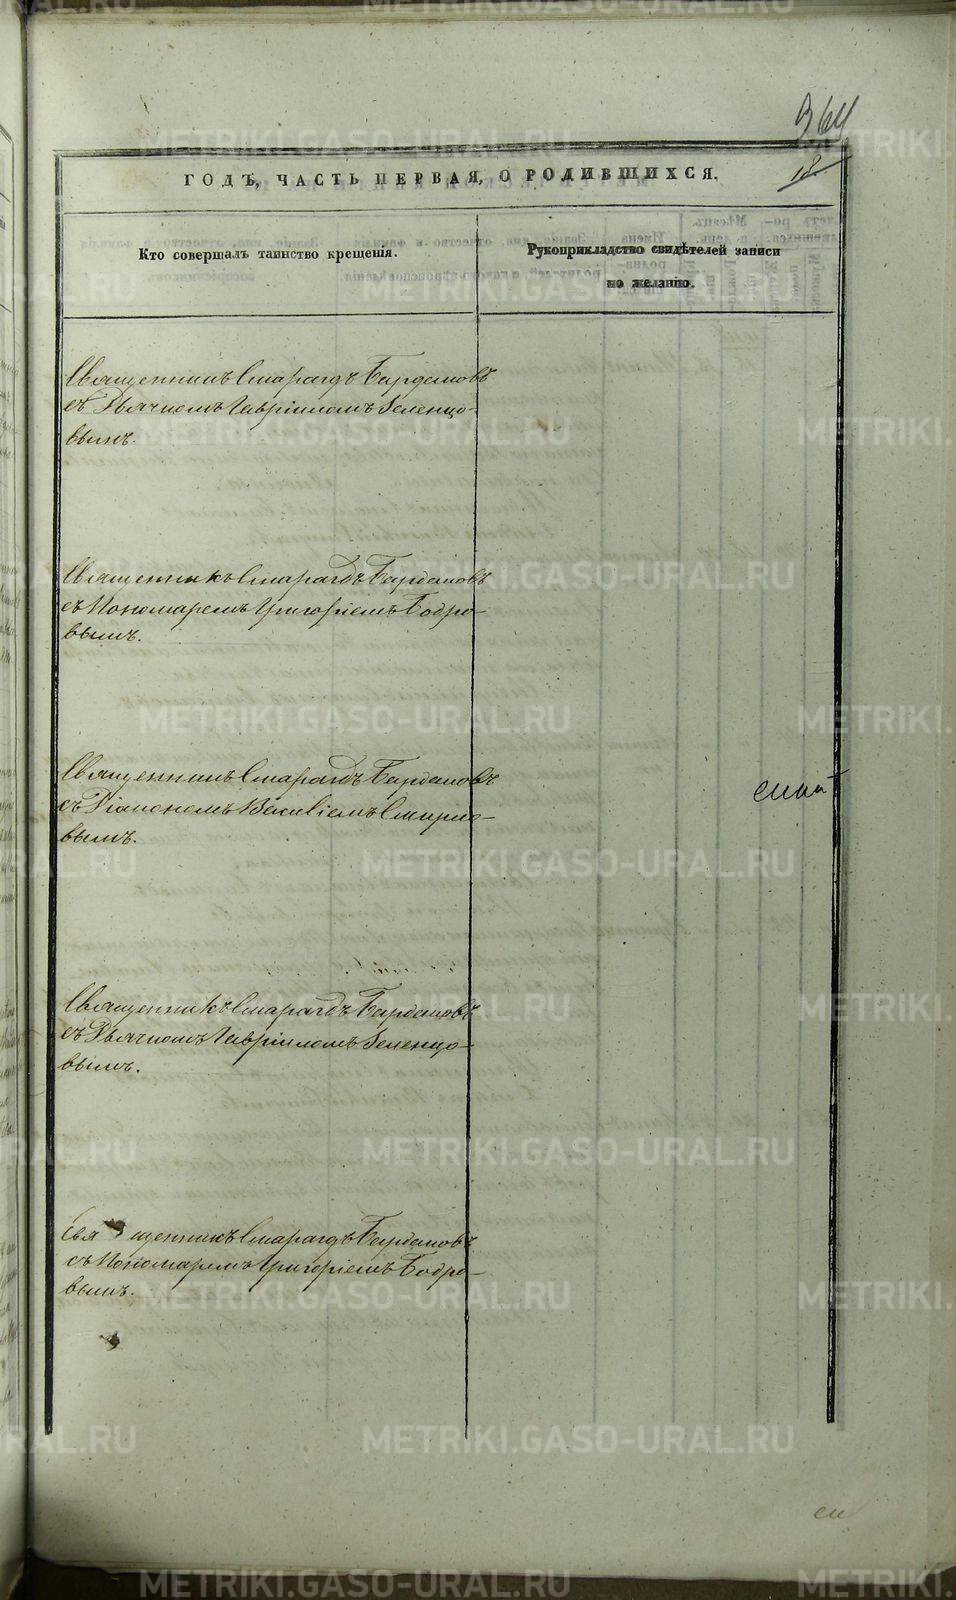 364
18.
ГОДЪ, ЧАСТЬ ПЕРВАЯ, О РОДИВШИХСЯ.
Кто совершалъ таинство крещенія.
Рукоприкладство свидѣтелей записи
по желанію.
Священникъ Смарагдъ Бардаковъ
съ Дьячкомъ Гавріиломъ Зеленцо-
вымъ.
Священникъ Смарагдъ Бардаковъ
съ Пономаремъ Григоріемъ Бодро-
вымъ.
Священникъ Смарагдъ Бардаковъ
съ Діакономъ Василіемъ Смирно-
вымъ.
Священникъ Смарагдъ Бардаковъ
съ Дьячкомъ Гавріиломъ Зеленцо-
вымъ.
Священникъ Смарагдъ Бардаковъ
съ Пономаремъ Григоріемъ Бодро-
вымъ.
METRIKI.GASO-URAL.RU